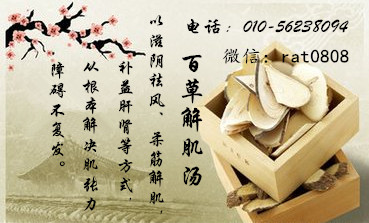 电话：010-56238094
微信：rat0808
百草解肌汤
以滋阴祛风、柔筋解肌，
补益肝肾等方式，
从根本解决肌张力
障碍不复发。